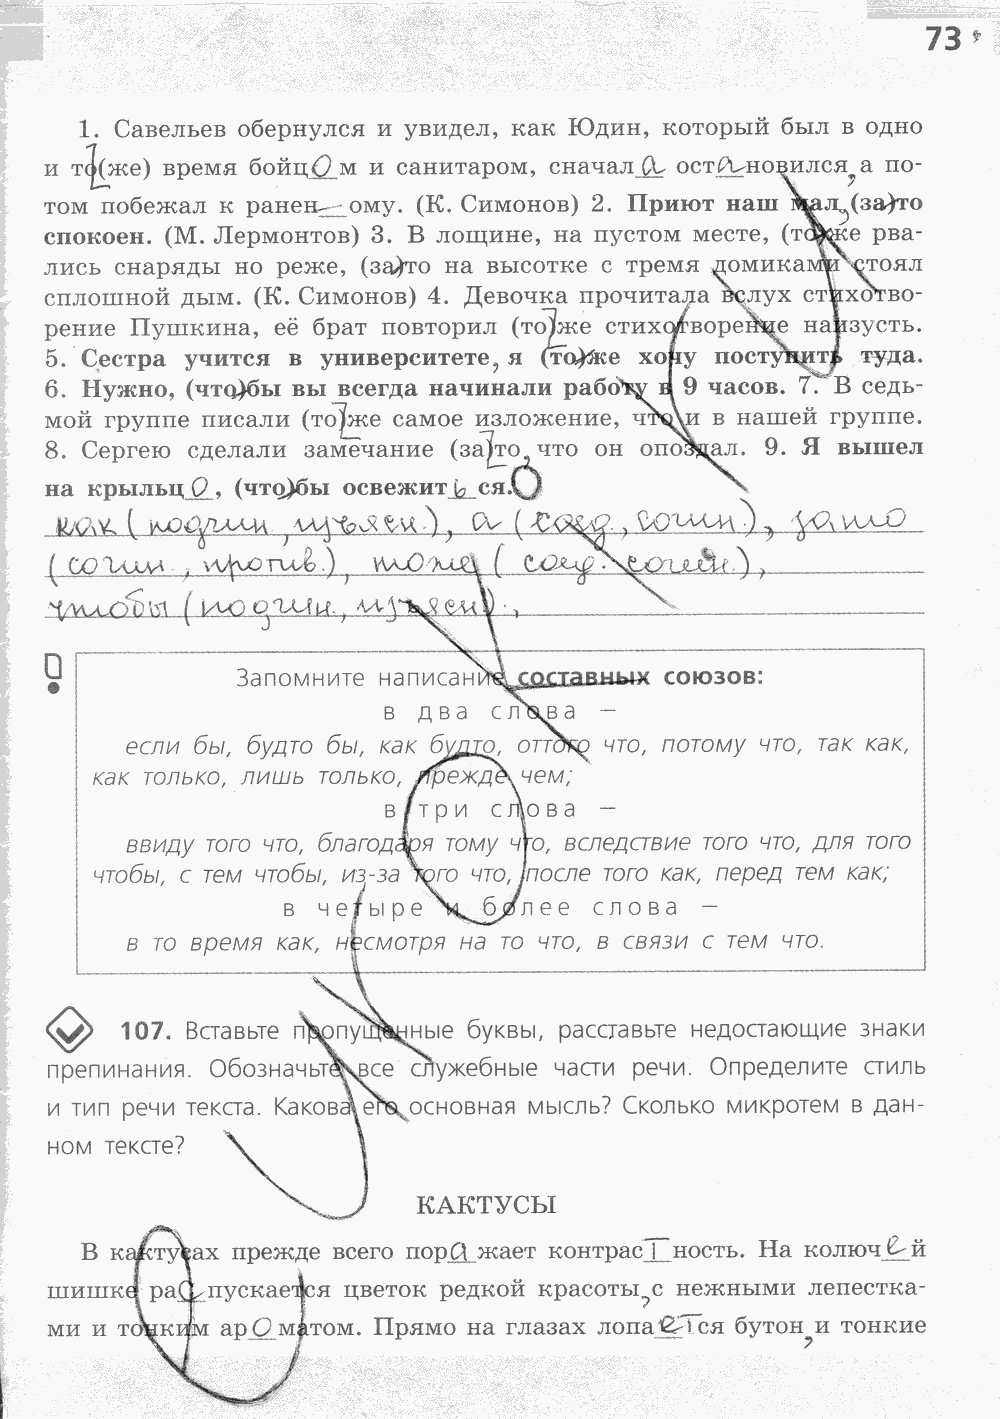 73
1. Савельев обернулся и увидел, как Юдин, который был в одно
и то(же) время бойцом и санитаром, сначала остановился, а по-
том побежал к ранен_ому. (К. Симонов) 2. Приют наш мал, (за)то
спокоен. (М. Лермонтов) 3. В лощине, на пустом месте, (то)же рва-
лись снаряды но реже, (за)то на высотке с тремя домиками стоял
сплошной дым. (К. Симонов) 4. Девочка прочитала вслух стихотво-
рение Пушкина, её брат повторил (то)же стихотворение наизусть.
5. Сестра учится в университете, я (то)же хочу поступить туда.
6. Нужно, (что)бы вы всегда начинали работу в 9 часов. 7. В седь-
мой группе писали (то)же самое изложение, что и в нашей группе.
8. Сергею сделали замечание (за)то, что он опоздал. 9. Я вышел
на крыльцо, (что)бы освежиться. О
как (подчин, изъясн.), а (соед., сочин.), зато
(сочин., против.), тоже (соед. сочин.),
чтобы (подчин, изъясн.),
Запомните написание составных союзов:
в два слова —
если бы, будто бы, как будто, оттого что, потому что, так как,
как только, лишь только, прежде чем;
в три слова —
ввиду того что, благодаря тому что, вследствие того что, для того
чтобы, с тем чтобы, из-за того что, после того как, перед тем как;
в четыре и более слова —
в то время как, несмотря на то что, в связи с тем что.
107. Вставьте пропущенные буквы, расставьте недостающие знаки
препинания. Обозначьте все служебные части речи. Определите стиль
и тип речи текста. Какова его основная мысль? Сколько микротем в дан-
ном тексте?
КАКТУСЫ
В кактусах прежде всего поражает контрастность. На колючей
шишке распускается цветок редкой красоты, с нежными лепестка-
ми и тонким ароматом. Прямо на глазах лопается бутон, и тонкие